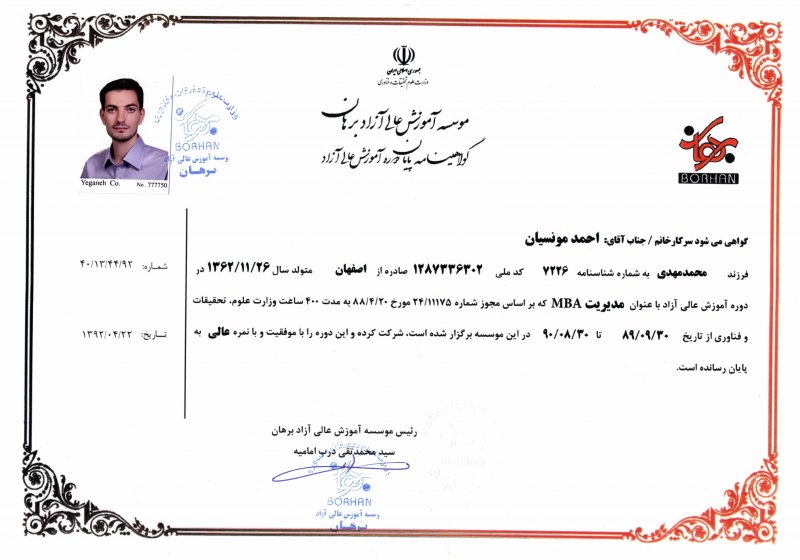 جمهوری اسلامی ایران
وزارت علوم تحقیقات و فناوری
موسسه آموزش عالی آزاد برهان
گواهینامه پایان دوره آموزش عالی آزاد
BORHAN
BORHAN
موسسه آموزش عالی آزاد
برهان
Yeganeh Co. No. 777750
گواهی می شود سرکارخانم / جناب آقای: احمد مونسیان
فرزند محمدمهدی به شماره شناسنامه ۷۲۲۶ کد ملی ۱۲۸۷۳۳۶۳۰۲ صادره از اصفهان متولد سال ۱۳۶۲/۱۱/۲۶ در
دوره آموزش عالی آزاد با عنوان مدیریت MBA که بر اساس مجوز شماره ۲۴/۱۱۱۷۵ مورخ ۸۸/۴/۲۰ به مدت ۴۰۰ ساعت وزارت علوم، تحقیقات
و فناوری از تاریخ ۸۹/۰۹/۳۰ تا ۹۰/۰۸/۳۰ در این موسسه برگزار شده است، شرکت کرده و این دوره را با موفقیت و با نمره عالی به
پایان رسانده است.
شماره: ۴۰/۱۳/۴۴/۹۲
تاریخ: ۱۳۹۲/۰۴/۲۲
رئیس موسسه آموزش عالی آزاد برهان
سید محمدتقی درب امامیه
BORHAN
موسسه آموزش عالی آزاد
برهان